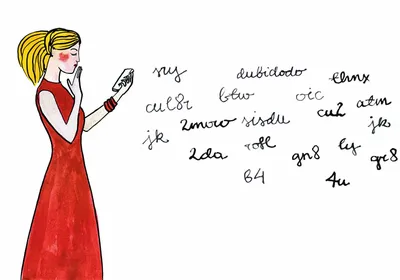 sry dubidodo thnx
cul8r btw oic cu2 atm
jk 2mow sisdu jk
2da rofl gn8 ly gr8
B4 4u